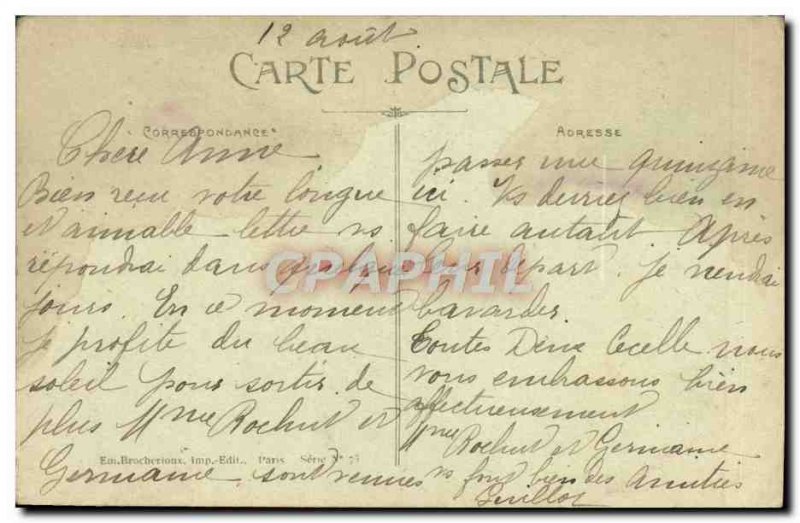 12 août
CARTE POSTALE
CORRESPONDANCE
ADRESSE
Chère Anne
Bien reçu votre longue
et aimable lettre ns
répondrai dans quelques
jours. En ce moment
je profite du beau
soleil pour sortir. de
plus Mme Rochut et
Germaine sont venues
passer une quinzaine
ici. Vs devriez bien en
faire autant. Après
leur départ. je viendrai
bavarder.
Toutes Deux Cecelle nous
vous embrassons bien
affectueusement
Mme Rochut et Germaine
vs font bien des Amitiés
Em. Brocherioux, Imp.-Edit., Paris Série N° 73
CAPHIL